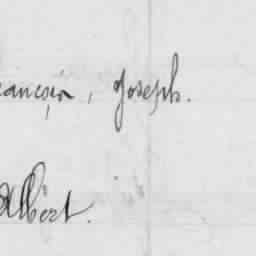 rançois, Joseph.
Albert.